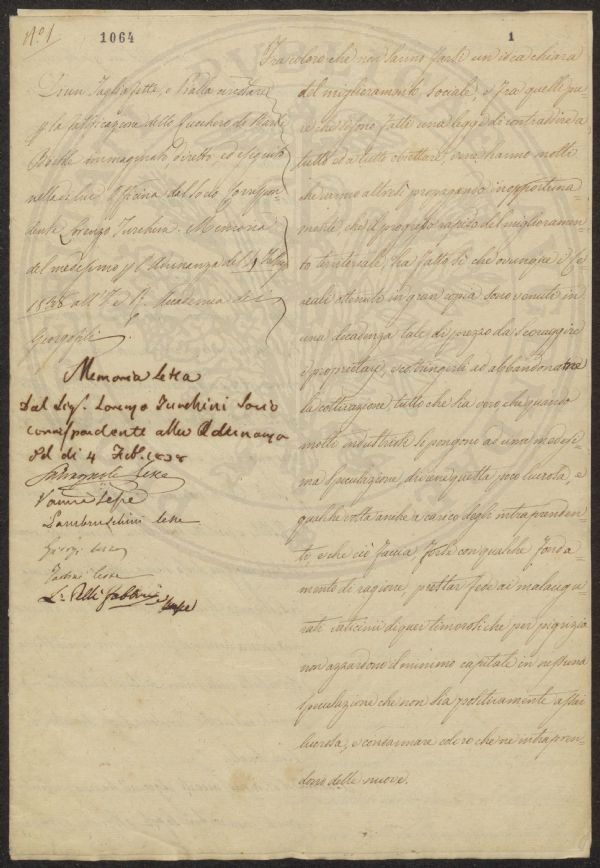 Nº. 1
1064
1
D'un Tagliafette, e Pialla circolare
p la fabbricazione dello Zucchero di Barba
Bietole immaginato diretto, ed eseguito
nella di lui Officina dal Socio Corrispon-
dente Lorenzo Turchini. Memoria
del medesimo p l'Adunanza del 4 Febb.
1838 all' I. e R. Accademia dei
Georgofili.
Memoria letta
Dal Sig. Lorenzo Turchini Socio
corrispondente alla Adunanza
del di 4 Feb. 1838
lesse
Vanni lesse
Lambruschini lesse
lesse
lesse
L. Pelli Fabbroni lesse
Fra coloro che non sanno farsi un idea chiara
del miglioramento sociale, e fra quelli pu-
re che si sono fatti una legge di contraddire a
tutto ed a tutto obiettare, ve ne hanno molti
che vanno altresì propagando inopportuna-
mente, che il progresso rapido del miglioramen-
to territoriale, ha fatto sì che ovunque i Ce-
reali ottenuti in gran copia sono venuti in
una decadenza tale di prezzo da scoraggire
i proprietarj, e costringerli ad abbandonarne
la coltivazione tutto che sia vero che quando
molti industriosi si pongono ad una medesi-
ma speculazione, diviene questa poco lucrosa, e
qualche volta anche a carico degli intraprenden-
ti, e che ciò faccia forse con qualche fonda-
mento di ragione prestar fede ai malaugu-
rati vaticinii di quei timorosi che per pigrizia
non azzardono il minimo capitale in nessuna
speculazione che non sia positivamente assai
lucrosa, e condannare coloro che ne intrapren-
dono delle nuove.